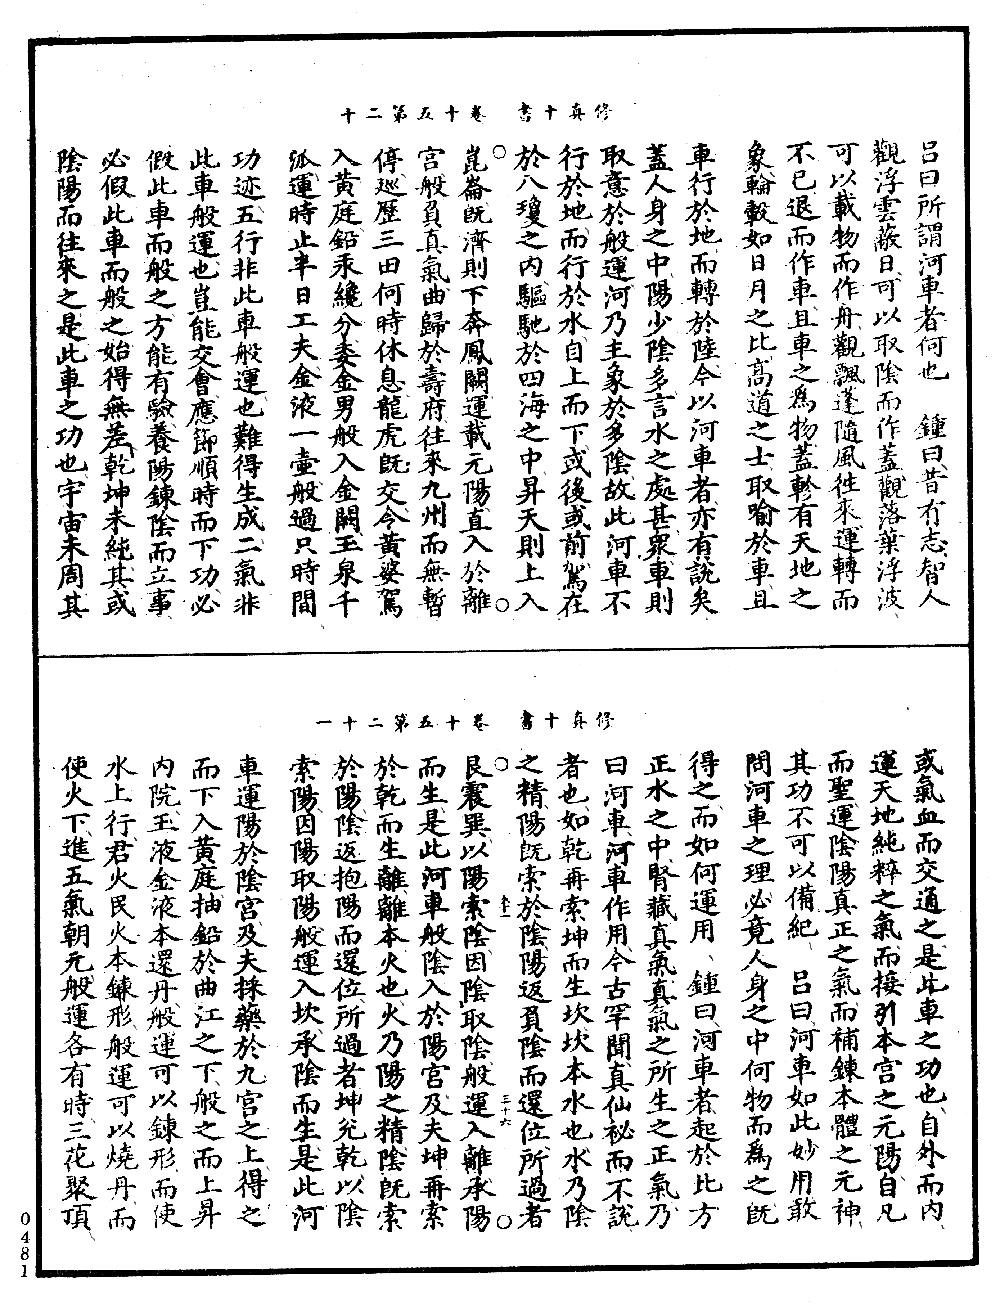 修真十書　卷十五第二十
呂曰所謂河車者何也　鍾曰昔有志智人
觀浮雲蔽日可以取陰而作蓋觀落葉浮波
可以載物而作舟觀飄蓬隨風往來運轉而
不已退而作車且車之爲物蓋軫有天地之
象輪轂如日月之比高道之士取喻於車且
車行於地而轉於陸今以河車者亦有說矣
蓋人身之中陽少陰多言水之處甚衆車則
取意於般運河乃主象於多陰故此河車不
行於地而行於水自上而下或後或前駕在
於八瓊之內驅馳於四海之中昇天則上入
崑崙既濟則下奔鳳闕運載元陽直入於離
宮般負真氣曲歸於壽府往來九州而無暫
停巡歷三田何時休息龍虎既交令黃婆駕
入黃庭鉛汞纔分委金男般入金闕玉泉千
派運時止半日工夫金液一壷般過只時間
功迹五行非此車般運也難得生成二氣非
此車般運也豈能交會應節順時而下功必
假此車而般之方能有驗養陽鍊陰而立事
必假此車而般之始得無差乾坤未純其或
陰陽而往來之是此車之功也宇宙未周其
修真十書　卷十五第二十一
或氣血而交通之是此車之功也自外而內
運天地純粹之氣而接引本宮之元陽自凡
而聖運陰陽真正之氣而補鍊本體之元神
其功不可以備紀　呂曰河車如此妙用敢
問河車之理必竟人身之中何物而爲之既
得之而如何運用　鍾曰河車者起於北方
正水之中腎藏真氣真氣之所生之正氣乃
曰河車河車作用今古罕聞真仙祕而不說
者也如乾再索坤而生坎坎本水也水乃陰
之精陽既索於陰陽返負陰而還位所過者
艮震巽以陽索陰因陰取陰般運入離承陽
而生是此河車般陰入於陽宮及夫坤再索
於乾而生離離本火也火乃陽之精陰既索
於陽陰返抱陽而還位所過者坤兌乾以陰
索陽因陽取陽般運入坎承陰而生是此河
車運陽於陰宮及夫採藥於九宮之上得之
而下入黃庭抽鉛於曲江之下般之而上昇
內院玉液金液本還丹般運可以鍊形而使
水上行君火民火本鍊形般運可以燒丹而
使火下進五氣朝元般運各有時三花聚頂
三十六
0481